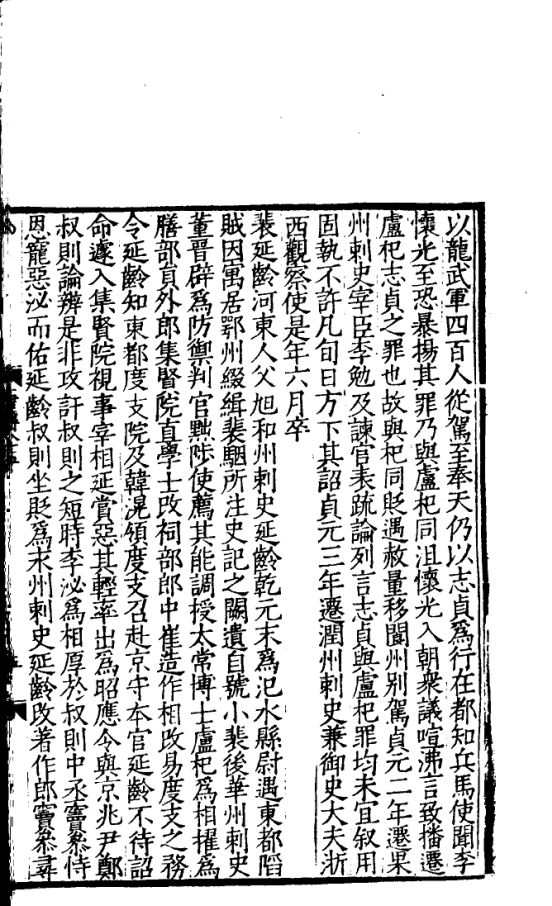 以龍武軍四百人從駕至奉天仍以志貞爲行在都知兵馬使聞李
懷光至恐暴揚其罪乃與盧杞同沮懷光入朝衆議喧沸言致播遷
盧杞志貞之罪也故與杞同貶遇赦量移閬州别駕貞元二年遷果
州刺史宰臣李勉及諫官表疏論列言志貞與盧杞罪均未宜叙用
固執不許凡旬日方下其詔貞元三年遷潤州刺史兼御史大夫浙
西觀察使是年六月卒
裴延齡河東人父旭和州刺史延齡乾元末爲汜水縣尉遇東都䧟
賊因寓居鄂州綴緝裴駰所注史記之闕遺自號小裴後華州刺史
董晉辟爲防禦判官黜陟使薦其能調授太常博士盧杞爲相擢爲
膳部員外郎集賢院直學士改祠部郎中崔造作相改易度支之務
令延齡知東都度支院及韓滉領度支召赴京守本官延齡不待詔
命遽入集賢院視事宰相延賞惡其輕率出爲昭應令與京兆尹鄭
叔則論辨是非攻訐叔則之短時李泌爲相厚於叔則中丞竇參恃
恩寵惡泌而佑延齡叔則坐貶爲永州刺史延齡改著作郎竇參尋